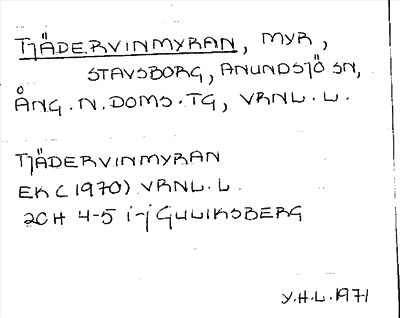 TJÄDERVINMYRAN, MYR,
STAVSBORG, ANUNDSJÖ SN,
ÅNG. N. DOMS. TG, VRNL. L.
TJÄDERVINMYRAN
EK (1970) VRNL. L.
20H 4-5 i-j GULIKSBERG
Y.H.L. 1971